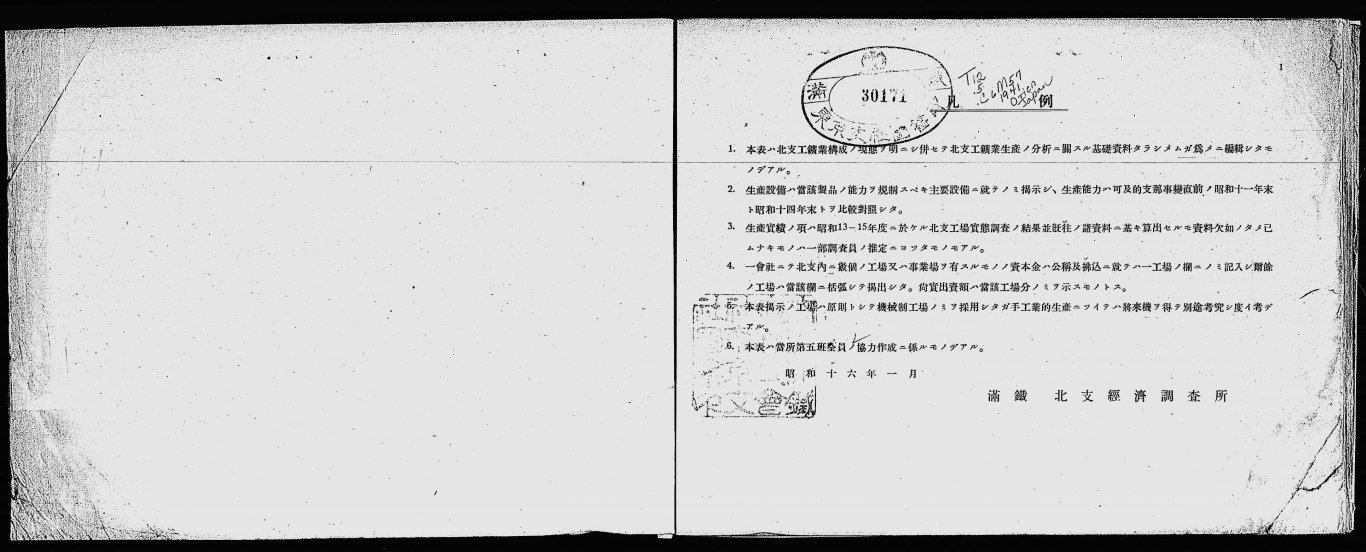 1
30171
凡例
1. 本表ハ北支工鑛業構成ノ現態ヲ明ニシ併セテ北支工鑛業生産ノ分析ニ關スル基礎資料タラシメムガ爲メニ編輯シタモ
ノデアル。
2. 生産設備ハ當該製品ノ能力ヲ規制スベキ主要設備ニ就テノミ揭示シ、生産能力ハ可及的支那事變直前ノ昭和十一年末
ト昭和十四年末トヲ比較對照シタ。
3. 生産實績ノ項ハ昭和13-15年度ニ於ケル北支工場實態調査ノ結果並旣往ノ諸資料ニ基キ算出セルモ資料欠如ノタメ已
ムナキモノハ一部調査員ノ推定ニヨツタモノモアル。
4. 一會社ニテ北支內ニ數個ノ工場又ハ事業場ヲ有スルモノノ資本金ハ公稱及拂込ニ就テハ一工場ノ欄ニノミ記入シ爾餘
ノ工場ハ當該欄ニ括弧シテ揭出シタ。尙實出資額ハ當該工場分ノミヲ示スモノトス。
5. 本表揭示ノ工場ハ原則トシテ機械制工場ノミヲ採用シタガ手工業的生産ニツイテハ將來機ヲ得テ別途考究シ度イ考デ
アル。
6. 本表ハ當所第五班全員ノ協力作成ニ係ルモノデアル。
昭和十六年一月
滿鐵 北支經濟調査所